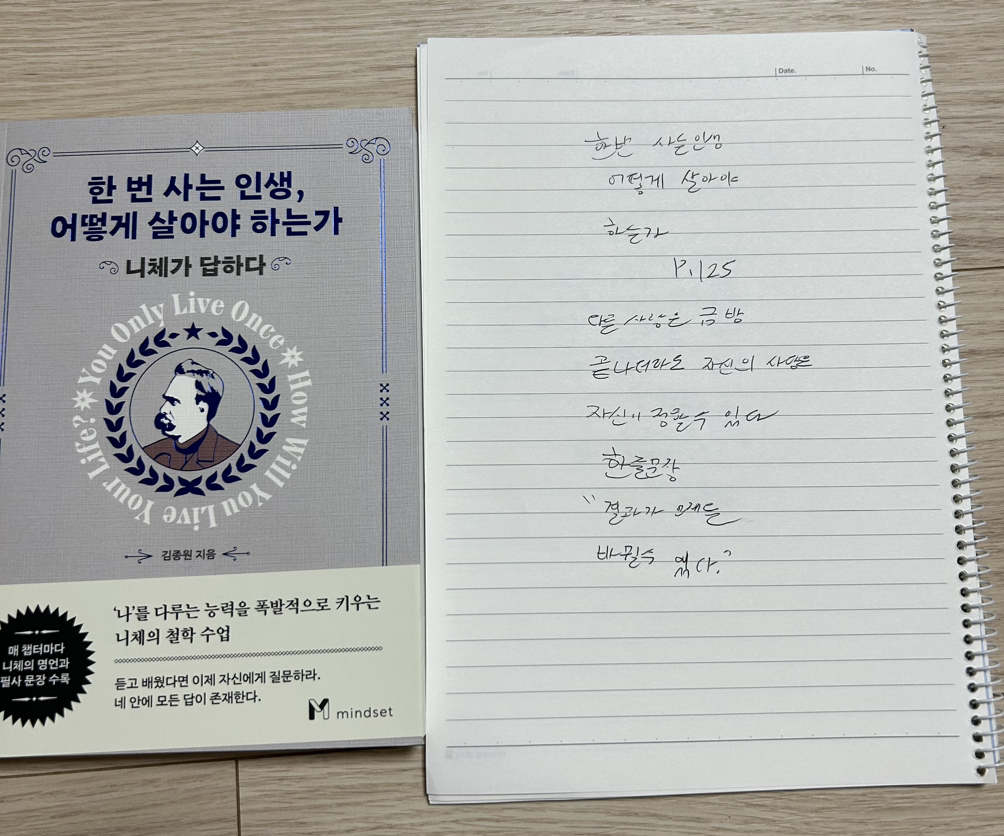 한 번 사는 인생,
어떻게 살아야 하는가
니체가 답하다
You Only Live Once
How Will You Live Your Life?
김종원 지음
'나'를 다루는 능력을 폭발적으로 키우는
니체의 철학 수업
매 챕터마다
니체의 명언과
필사 문장 수록
듣고 배웠다면 이제 자신에게 질문하라.
네 안에 모든 답이 존재한다.
mindset
Date.
No.
한번 사는인생
어떻게 살아야
하는가
P.125
다른 사랑은 금방
끝나더라도 자신의 사랑은
자신이 정할수 있다
한줄문장
"결과가 언제든
바뀔수 있다."